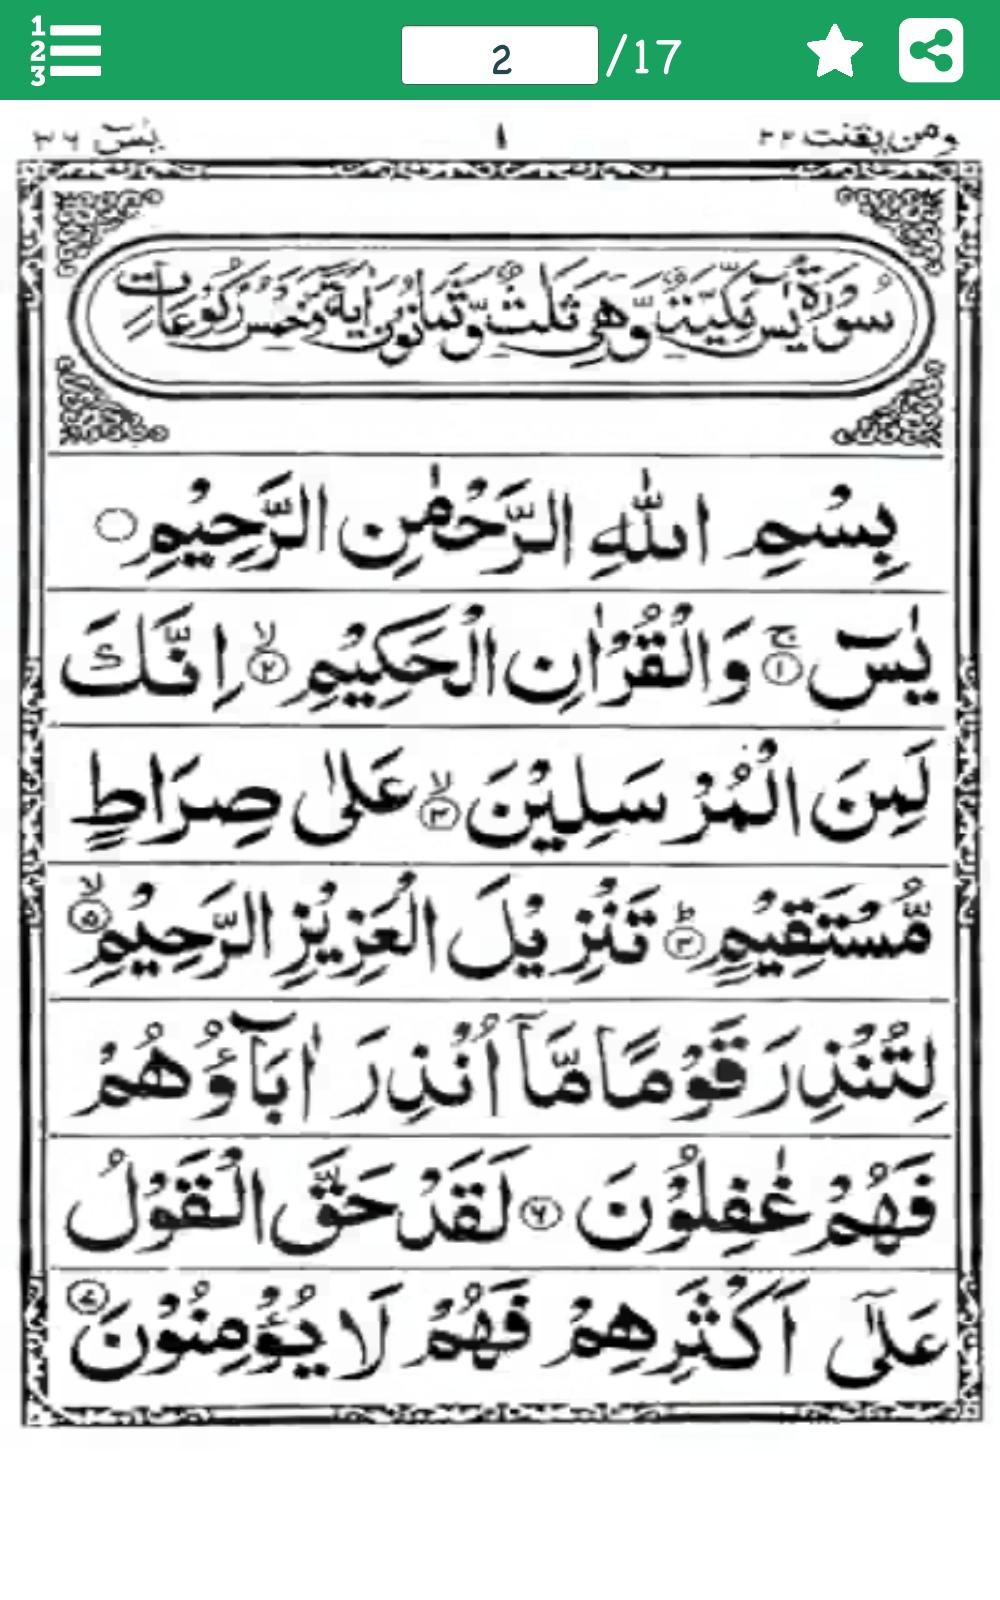 1
2
3
2 /17
ومن يقنت ٢٢ ١ يٰسٓ ٣٦
سُوْرَةُ يٰسٓ مَكِّيَّةٌ وَّهِيَ ثَلٰثٌ وَّثَمَانُوْنَ اٰيَةً وَّخَمْسُ رُكُوْعَاتٍ
بِسْمِ اللّٰهِ الرَّحْمٰنِ الرَّحِيْمِ ○
يٰسٓ ۚ﴿۱﴾ وَالْقُرْاٰنِ الْحَكِيْمِ ۙ﴿۲﴾ اِنَّكَ
لَمِنَ الْمُرْسَلِيْنَ ۙ﴿۳﴾ عَلٰى صِرَاطٍ
مُّسْتَقِيْمٍ ؕ﴿۴﴾ تَنْزِيْلَ الْعَزِيْزِ الرَّحِيْمِ ۙ﴿۵﴾
لِتُنْذِرَ قَوْمًا مَّاۤ اُنْذِرَ اٰبَآؤُهُمْ
فَهُمْ غٰفِلُوْنَ ﴿۶﴾ لَقَدْ حَقَّ الْقَوْلُ
عَلٰۤى اَكْثَرِهِمْ فَهُمْ لَا يُؤْمِنُوْنَ ﴿۷﴾